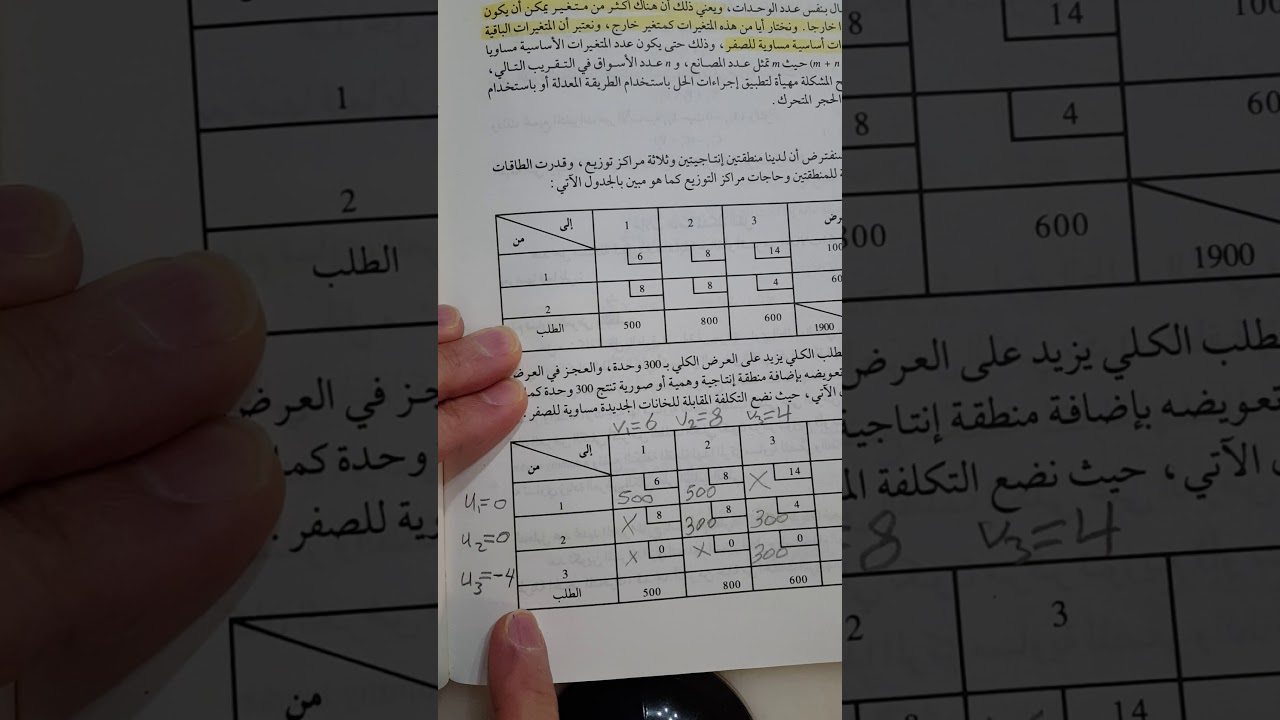 ال بنفس عدد الوحدات، ويعني ذلك أن هناك أكثر من متغير يمكن أن يكون
ا خارجا. ونختار أيا من هذه المتغيرات كمتغير خارج، ونعتبر أن المتغيرات الباقية
ات أساسية مساوية للصفر، وذلك حتى يكون عدد المتغيرات الأساسية مساويا
(m + n حيث m تمثل عدد المصانع، و n عدد الأسواق في التقريب التالي،
ح المشكلة مهيأة لتطبيق إجراءات الحل باستخدام الطريقة المعدلة أو باستخدام
الحجر المتحرك.
ستفترض أن لدينا منطقتين إنتاجيتين وثلاثة مراكز توزيع، وقدرت الطاقات
ة للمنطقتين وحاجات مراكز التوزيع كما هو مبين بالجدول الآتي:
إلى من 1 2 3 رض
1 6 8 14 100
2 8 8 4 60
الطلب 500 800 600 1900
طلب الكلي يزيد على العرض الكلي بـ 300 وحدة، والعجز في العرض
تعويضه بإضافة منطقة إنتاجية وهمية أو صورية تنتج 300 وحدة كما
الآتي، حيث نضع التكلفة المقابلة للخانات الجديدة مساوية للصفر.
V₁=6 V₂=8 V₃=4
إلى من 1 2 3
U₁=0 1 6 500 8 500 14 X
U₂=0 2 8 X 8 300 4 300
U₃=-4 3 0 X 0 X 0 300
الطلب 500 800 600